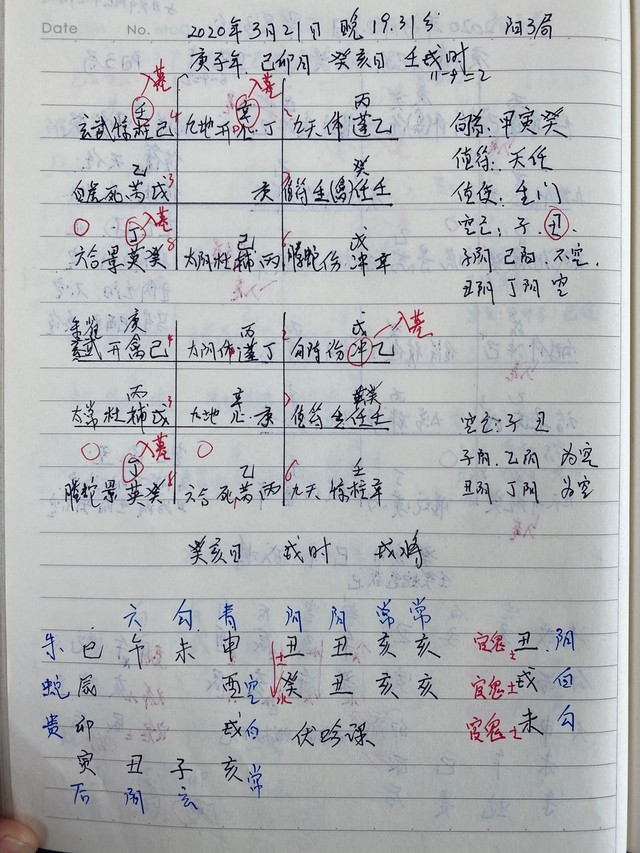 Date No. 2020年3月21日 晚 19.31分 阳3局
庚子年 己卯月 癸亥日 壬戌时
11-9=2
入墓 入墓
壬 辛 丙
玄武惊柱己 4 九地开心丁 九天休蓬乙 旬首:甲寅癸
乙 癸 值符:天任
白虎死芮戊 3 庚 值符生(禽)任壬 值使:生门
空亡:子 丑
丁 入墓 己 戊 子阴 己阴 不空.
六合景英癸 8 太阴杜辅丙 6 腾蛇伤冲辛 丑阴 丁阴 空
朱雀 庚 丙 戊 入墓
玄武开禽己 4 太阴休蓬丁 2 勾陈伤冲乙
丙 辛 癸
太常杜辅戊 3 九地心庚 7 值符生任壬 空亡:子 丑
入墓 子阴.乙阴 为空
丁 乙 壬
腾蛇景英癸 8 六合死芮丙 6 九天惊柱辛 丑阴 丁阴 为空
癸亥日 戌时 戌将
六 勾 青 阴 阴 常 常
朱 巳 午 未 申 丑 丑 亥 亥 官鬼土 丑 阴
蛇 辰 酉 空 癸 丑 亥 亥 官鬼土 戌 白
贵 卯 戌 白 伏吟课 官鬼土 未 勾
寅 丑 子 亥 常
后 阴 玄